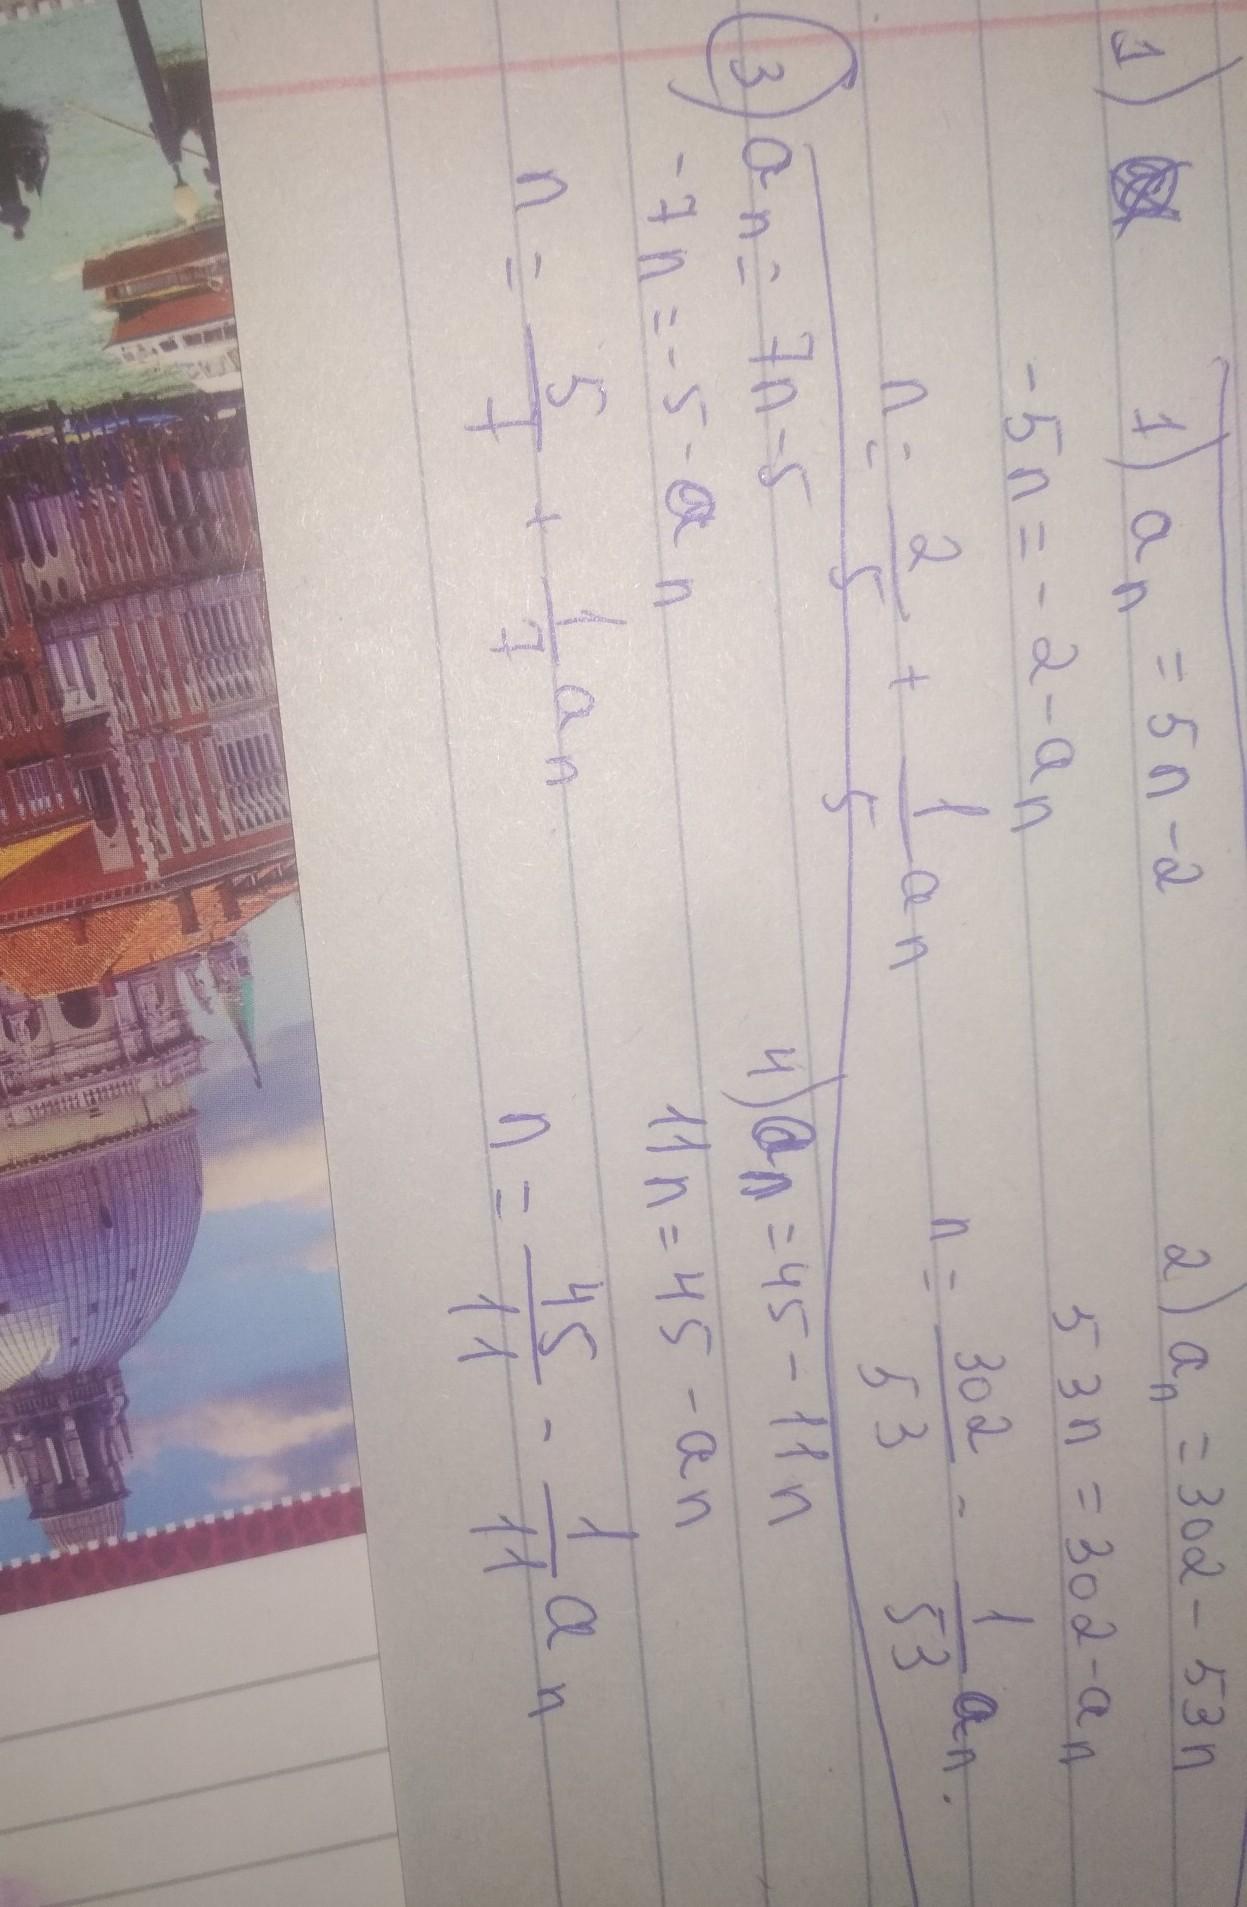 1)
1) aₙ = 5n - 2
-5n = -2 - aₙ
n = 2/5 + 1/5 aₙ
2) aₙ = 302 - 53n
53n = 302 - aₙ
n = 302/53 - 1/53 aₙ.
3) aₙ = 7n - 5
-7n = -5 - aₙ
n = 5/7 + 1/7 aₙ
4) aₙ = 45 - 11n
11n = 45 - aₙ
n = 45/11 - 1/11 aₙ